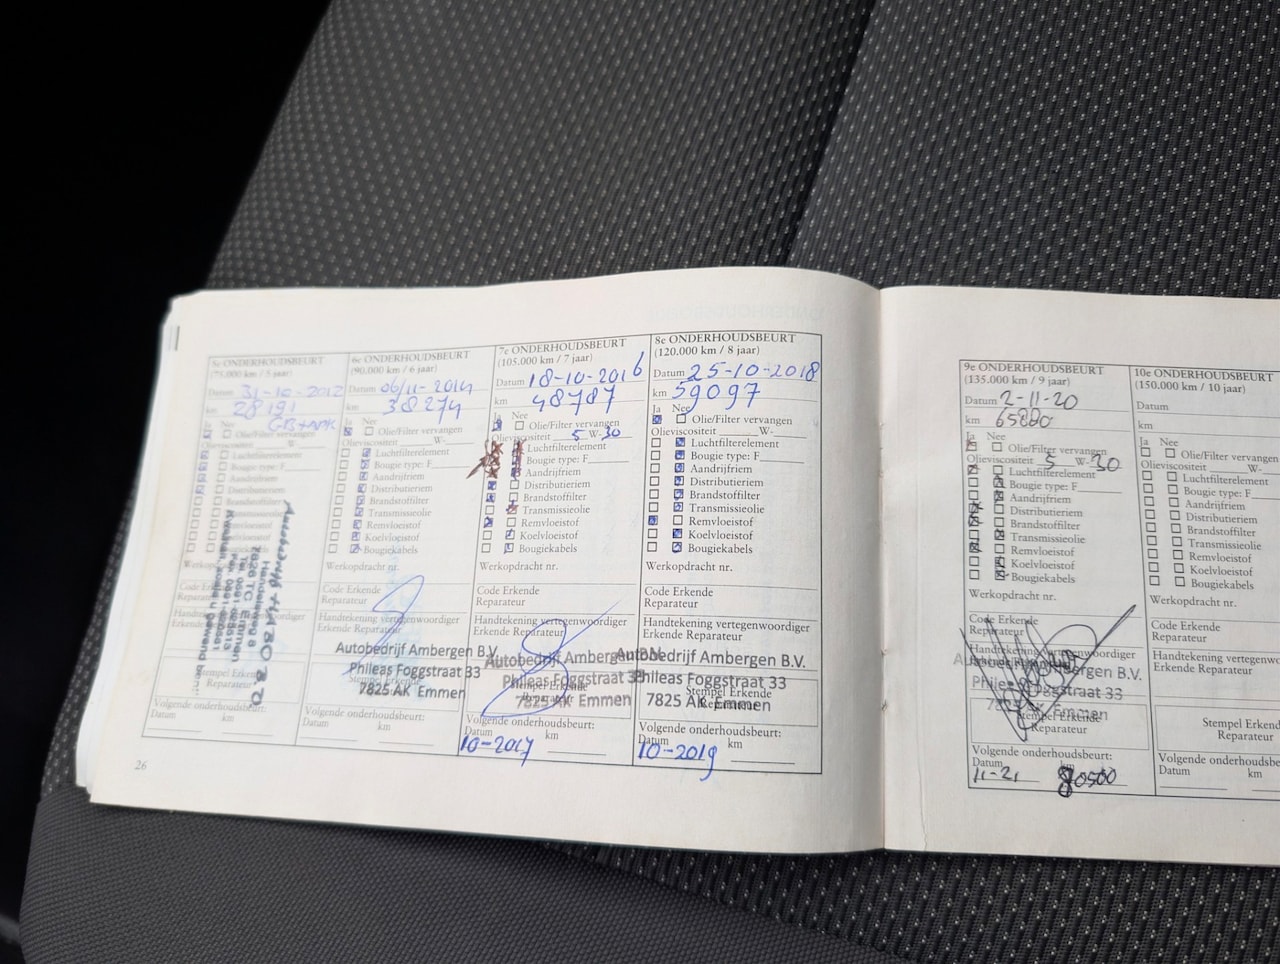 5e ONDERHOUDSBEURT
(75.000 km / 5 jaar)
Datum 31-10-2012
km 28191
Ja Nee
Olie/Filter vervangen
Olieviscositeit W-
Luchtfilterelement
Bougie type: F
Aandrijfriem
Distributieriem
Werkopdracht nr.
Code Erkende
Reparateur
Stempel Erkende
Reparateur
Volgende onderhoudsbeurt:
Datum km
26
6e ONDERHOUDSBEURT
(90.000 km / 6 jaar)
Datum 06/11-2014
km 38274
Ja Nee
Olie/Filter vervangen
Olieviscositeit W-
Luchtfilterelement
Bougie type: F
Aandrijfriem
Distributieriem
Brandstoffilter
Transmissieolie
Remvloeistof
Koelvloeistof
Bougiekabels
Werkopdracht nr.
Code Erkende
Reparateur
Handtekening vertegenwoordiger
Erkende Reparateur
Autobedrijf Ambergen B.V.
Phileas Foggstraat 33
7825 AK Emmen
Volgende onderhoudsbeurt:
Datum km
7e ONDERHOUDSBEURT
(105.000 km / 7 jaar)
Datum 18-10-2016
km 48787
Ja Nee
Olie/Filter vervangen
Olieviscositeit 5 W-30
Luchtfilterelement
Bougie type: F
Aandrijfriem
Distributieriem
Brandstoffilter
Transmissieolie
Remvloeistof
Koelvloeistof
Bougiekabels
Werkopdracht nr.
Code Erkende
Reparateur
Handtekening vertegenwoordiger
Erkende Reparateur
Autobedrijf Ambergen
Phileas Foggstraat 33
Stempel Erkende
7825 AK Emmen
Volgende onderhoudsbeurt:
Datum km
10-2017
8e ONDERHOUDSBEURT
(120.000 km / 8 jaar)
Datum 25-10-2018
km 59097
Ja Nee
Olie/Filter vervangen
Olieviscositeit W-
Luchtfilterelement
Bougie type: F
Aandrijfriem
Distributieriem
Brandstoffilter
Transmissieolie
Remvloeistof
Koelvloeistof
Bougiekabels
Werkopdracht nr.
Code Erkende
Reparateur
Handtekening vertegenwoordiger
Erkende Reparateur
Autobedrijf Ambergen B.V.
Phileas Foggstraat 33
Stempel Erkende
7825 AK Emmen
Volgende onderhoudsbeurt:
Datum km
10-2019
9e ONDERHOUDSBEURT
(135.000 km / 9 jaar)
Datum 2-11-20
km 65880
Ja Nee
Olie/Filter vervangen
Olieviscositeit 5 W-30
Luchtfilterelement
Bougie type: F
Aandrijfriem
Distributieriem
Brandstoffilter
Transmissieolie
Remvloeistof
Koelvloeistof
Bougiekabels
Werkopdracht nr.
Code Erkende
Reparateur
Ambergen B.V.
Phileas Foggstraat 33
Emmen
Stempel Erkende
Reparateur
Volgende onderhoudsbeurt:
Datum km
11-21 80500
10e ONDERHOUDSBEURT
(150.000 km / 10 jaar)
Datum
km
Ja Nee
Olie/Filter vervangen
Olieviscositeit W-
Luchtfilterelement
Bougie type: F
Aandrijfriem
Distributieriem
Brandstoffilter
Transmissieolie
Remvloeistof
Koelvloeistof
Bougiekabels
Werkopdracht nr.
Code Erkende
Reparateur
Handtekening vertegenwoordiger
Erkende Reparateur
Stempel Erkende
Reparateur
Volgende onderhoudsbeurt:
Datum km